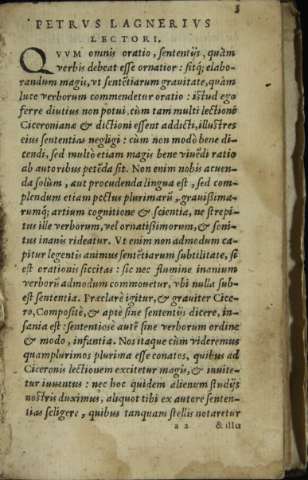 3
PETRVS LAGNERIVS
LECTORI.
QVVM omnis oratio, sententijs, quàm
verbis debeat esse ornatior: sitq; elabo-
randum magis, vt sentẽtiarum grauitate, quàm
luce verborum commendetur oratio: istud ego
ferre diutius non potui, cùm tam multi lectioni
Ciceronianæ & dictioni essent addicti, illustres
eius sententias negligi: cùm non modò bene di-
cendi, sed multò etiam magis bene viuẽdi ratio
ab autoribus petẽda sit. Non enim nobis acuen-
da solùm, aut procudenda lingua est, sed com-
plendum etiam pectus plurimarũ, grauißima-
rumq; artium cognitione & scientia, ne strepi-
tus ille verborum, vel ornatißimorum, & soni-
tus inanis rideatur. Vt enim non admodum ca-
pitur legentis animus sentẽtiarum subtilitate, si
est orationis siccitas: sic nec flumine inanium
verborũ admodum commouetur, vbi nulla sub-
est sententia. Præclarè igitur, & grauiter Cice-
ro, Compositè, & aptè sine sententijs dicere, in-
sania est: sententiosè autẽ sine verborum ordine
& modo, infantia. Nos itaque cùm videremus
quamplurimos plurima esse conatos, quibus ad
Ciceronis lectionem excitetur magis, & inuite-
tur iuuentus: nec hoc quidem alienum studijs
nostris duximus, aliquot tibi ex autore senten-
tias seligere, quibus tanquam stellis notaretur
a 2 & illu